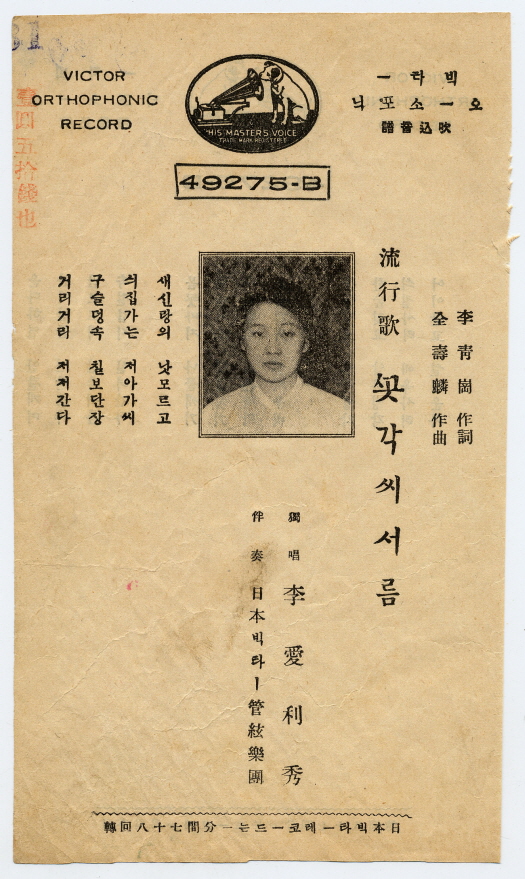 VICTOR
ORTHOPHONIC
RECORD
HIS MASTER'S VOICE
TRADE MARK REGISTERED
빅타ー
오ー소포닉
吹込音譜
49275-B
壹圓五拾錢也
31
李靑崗 作詞
全壽麟 作曲
流行歌 꼿각씨서름
새신랑의 낫모르고
싀집가는 저아가씨
구슬덩속 칠보단장
거리거리 저저간다
獨唱 李愛利秀
伴奏 日本빅타ー管絃樂團
日本빅타ー레코ー드는一分間七十八回轉